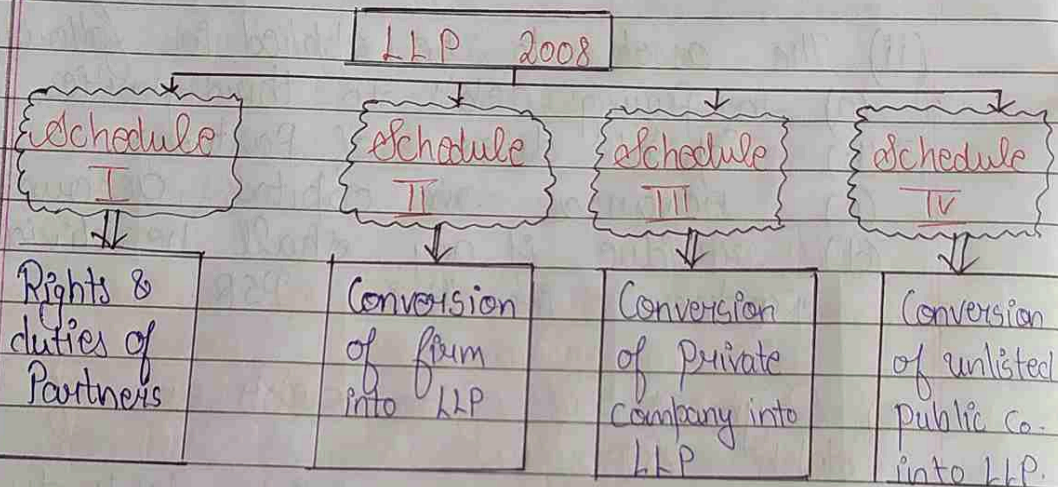 LLP 2008
Schedule
I
Schedule
II
Schedule
III
Schedule
IV
Rights &
duties of
Partners
Conversion
of firm
into LLP
Conversion
of Private
Company into
LLP
Conversion
of unlisted
Public Co.
into LLP.